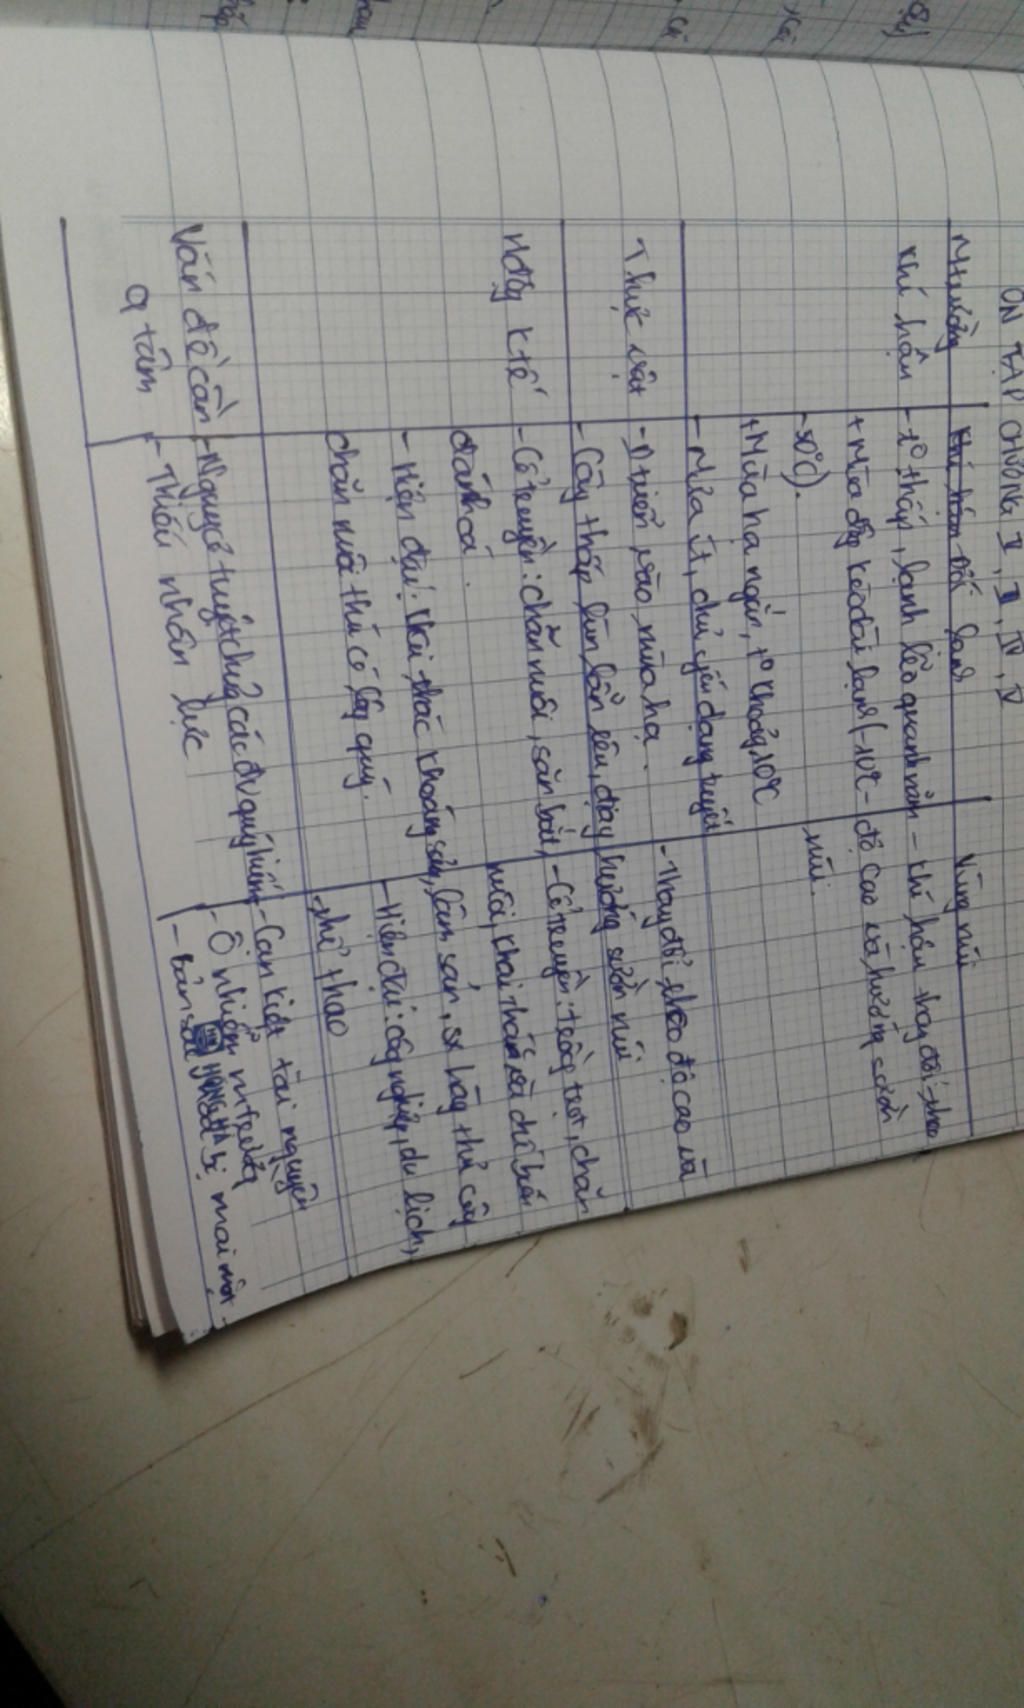 ÔN TẬP CHƯƠNG II, III, IV, V
Mtrường
Đới lạnh
Vùng núi
Khí hậu
- t° thấp, lạnh lẽo quanh năm
+ Mùa đông kéo dài lạnh (-10°C -
-50°C).
+ Mùa hạ ngắn, t° khoảng 10°C
- Mưa ít, chủ yếu dạng tuyết
- Khí hậu thay đổi theo
độ cao và hướng sườn
núi.
Thực vật
- Ptriển vào mùa hạ.
- Cây thấp lùn, lẫn rêu, địa y
- Thay đổi theo độ cao và
hướng sườn núi
Hđộng ktế
- Cổ truyền: chăn nuôi, săn bắt,
đánh cá.
- Hiện đại: khai thác khoáng sản,
chăn nuôi thú có lông quý.
- Cổ truyền: trồng trọt, chăn
nuôi, khai thác và chế biến
lâm sản, sx hàng thủ công
- Hiện đại: công nghiệp, du lịch,
thể thao
Vấn đề cần
q tâm
- Nguy cơ tuyệt chủng các đv quý hiếm
- Thiếu nhân lực
- Cạn kiệt tài nguyên
- Ô nhiễm mtrường
- bản sắc bị mai một.